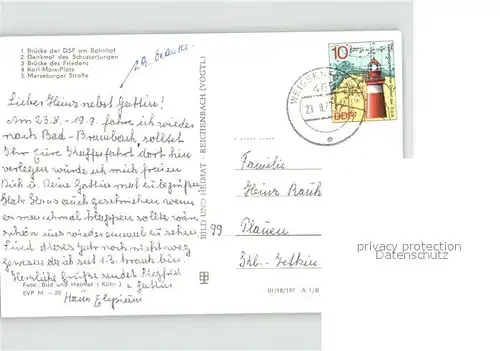 1 Brücke der DSF am Bahnhof
2 Denkmal des Schusterjungen
3 Brücke des Friedens
4 Karl-Marx-Platz
5 Merseburger Straße
Lieber Heinz nebst Gattin!
Am 23.8. - 19.9. fahre ich wieder
nach Bad-Brambach, solltet
Ihr Eure Kaffeefahrt dort hin
verlegen würde ich mich freuen
Dich u. Deine Gattin mal zu begrüßen
Habe Hans auch geschrieben wenn
es mal klappen sollte wär
schön uns wiedermal zu sehen
Sind dieses Jahr noch nicht weg
gewesen da ich seit 1.3. krank bin.
Herzliche Grüße sendet Siegfried
u. Gattin
Hans
Foto: Bild und Heimat (Kühn)
EVP M –.20
BILD UND HEIMAT · REICHENBACH (VOGTL)
10
DDR
23. 8.
Familie
Heinz
99 Plauen
Str.
III/18/197 A 1/B
privacy protection
Datenschutz